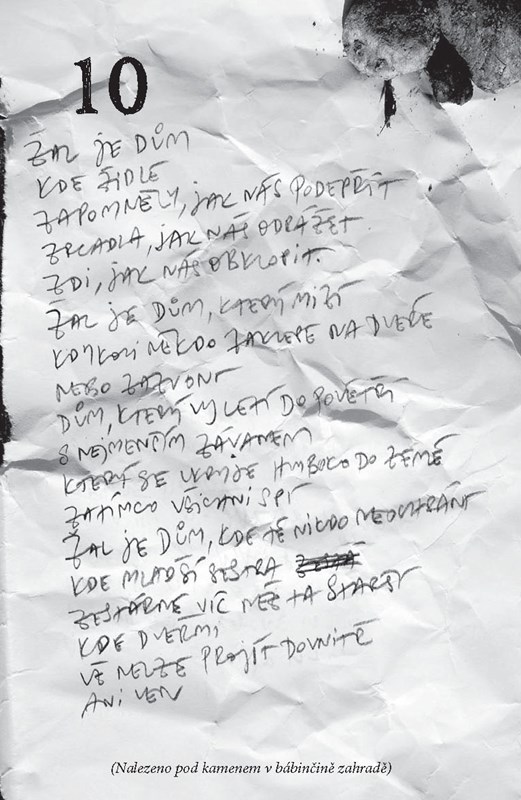 10
ŽAL JE DŮM
KDE ŽIDLE
ZAPOMNĚLY, JAK NÁS PODEPŘÍT
ZRCADLA, JAK NÁS ODRÁŽET
ZDI, JAK NÁS OBKLOPIT.
ŽAL JE DŮM, KTERÝ MIZÍ
KDYKOLI NĚKDO ZAKLEPE NA DVEŘE
NEBO ZAZVONÍ
DŮM, KTERÝ VYLETÍ DO POVĚTŘÍ
S NEJMENŠÍM ZÁVANEM
KTERÝ SE UKRYJE HLUBOKO DO ZEMĚ
ZATÍMCO VŠICHNI SPÍ
ŽAL JE DŮM, KDE TĚ NIKDO NEOCHRÁNÍ
KDE MLADŠÍ SESTRA
ZESTÁRNE VÍC NEŽ TA STARŠÍ
KDE DVEŘMI
UŽ NELZE PROJÍT DOVNITŘ
ANI VEN
(Nalezeno pod kamenem v bábinčině zahradě)